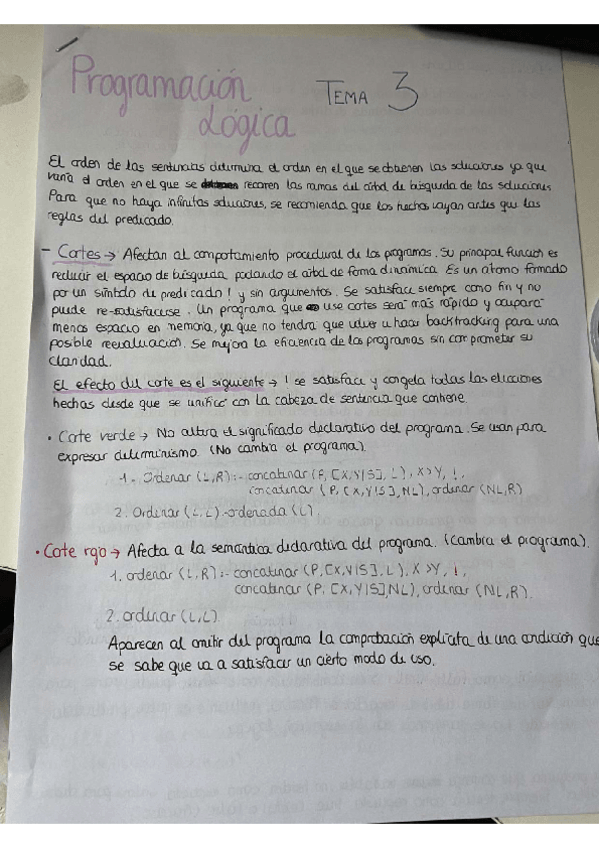 Programación
Lógica
TEMA 3
El orden de las sentencias determina el orden en el que se obtienen las soluciones ya que
varía el orden en el que se recorren las ramas del árbol de búsqueda de las soluciones
Para que no haya infinitas soluciones, se recomienda que los hechos vayan antes que las
reglas del predicado.
- Cortes → Afectan al comportamiento procedural de los programas. Su principal función es
reducir el espacio de búsqueda podando el árbol de forma dinámica. Es un átomo formado
por un símbolo de predicado ! y sin argumentos. Se satisface siempre como fin y no
puede re-satisfacerse. Un programa que use cortes será más rápido y ocupará
menos espacio en memoria, ya que no tendrá que volver a hacer backtracking para una
posible reevaluación. Se mejora la eficiencia de los programas sin comprometer su
claridad.
El efecto del corte es el siguiente → ! se satisface y congela todas las elecciones
hechas desde que se unificó con la cabeza de sentencia que contiene.
• Corte verde → No altera el significado declarativo del programa. Se usan para
expresar determinismo. (No cambia el programa).
1. Ordenar (L,R):- concatenar (P, [X,Y|S], L), X>Y, !,
concatenar (P, [X,Y|S],NL), ordenar (NL,R)
2. Ordenar (L,L)-ordenada (L).
• Corte rojo → Afecta a la semántica declarativa del programa. (Cambia el programa).
1. ordenar (L,R):- concatenar (P,[X,Y|S],L), X>Y, !,
concatenar (P, [X,Y|S]NL), ordenar (NL,R).
2. ordenar (L,L).
Aparecen al omitir del programa la comprobación explícita de una condición que
se sabe que va a satisfacer un cierto modo de uso.